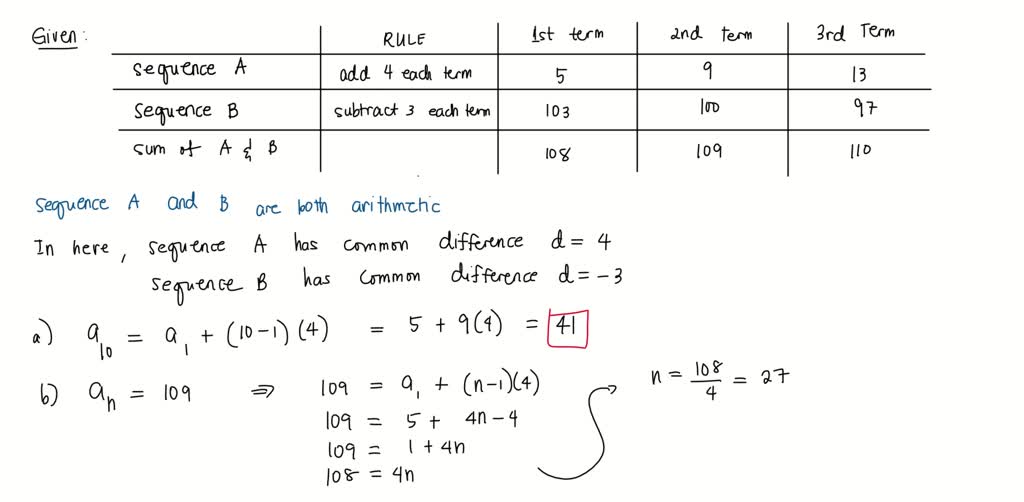 Given:
RULE 1st term 2nd term 3rd Term
sequence A add 4 each term 5 9 13
sequence B subtract 3 each term 103 100 97
sum of A & B 108 109 110
sequence A and B are both arithmetic
In here, sequence A has common difference d = 4
sequence B has common difference d = -3
a) a₁₀ = a₁ + (10-1)(4) = 5 + 9(4) = 41
b) aₙ = 109 ⇒ 109 = a₁ + (n-1)(4) n = 108/4 = 27
109 = 5 + 4n - 4
109 = 1 + 4n
108 = 4n